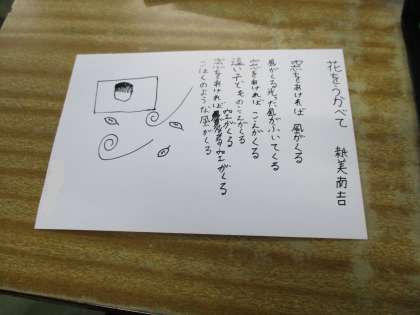 花をうかべて 新美南吉
窓をあければ 風がくる
風がくる光った風がふいてくる
窓をあければ こえがくる
遠い子どものこえがくる
窓をあければ 空がくる
こはくのような空がくる